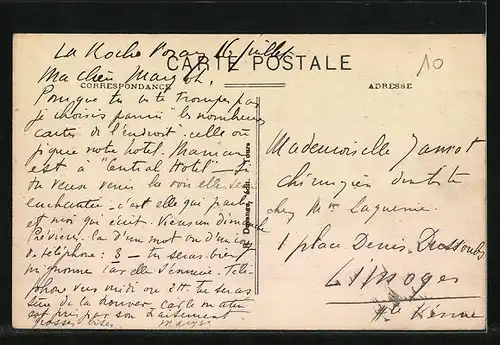 La Roche Posay 16 juillet
Ma chère Margot,
CARTE POSTALE
10
CORRESPONDANCE
ADRESSE
Pour que tu ne te trompes pas
je choisis parmi les nombreuses
cartes de l'endroit celle où
figure notre hotel. Maman
est à "Central Hotel" Si
tu veux venir la voir elle sera
enchantée. c'est elle qui parle
et moi qui écrit. Viens un dimanche
Préviens-la d'un mot ou d'un coup
de téléphone: 3 - tu seras bien
mignonne car elle s'ennuie. Télé-
phone vers midi ou 2h. tu seras
sûre de la trouver, car le matin
est pris par son traitement.
grosses bises
Mademoiselle
Chirurgien dentiste
chez Mme Laguenie
1 place Denis Dussoubs
Limoges
Hte Vienne
édit. Tours